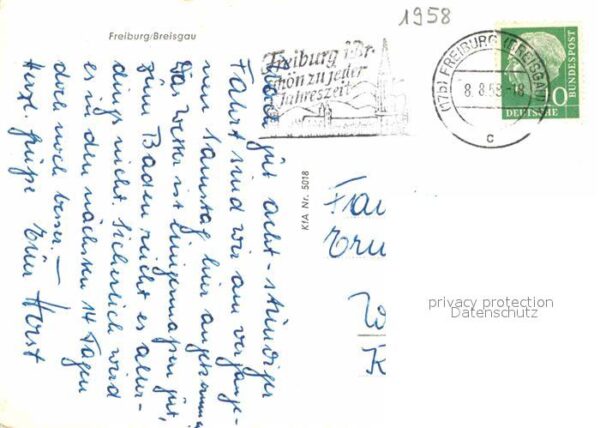 1958
Freiburg/Breisgau
Freiburg i. Br.
schön zu jeder
Jahreszeit
(17b) FREIBURG (BREISGAU)
8.8.58-18
c
10
DEUTSCHE
BUNDESPOST
KfA Nr. 5018
Nach gut acht-stündiger
Fahrt sind wir am vergange-
nen Samstag hier angekommen
Das Wetter ist einigermaßen gut,
zum Baden reicht es aller-
dings nicht. Sicherlich wird
es in den nächsten 14 Tagen
doch noch besser. —
Herzl. Grüße Euer Horst
privacy protection
Datenschutz